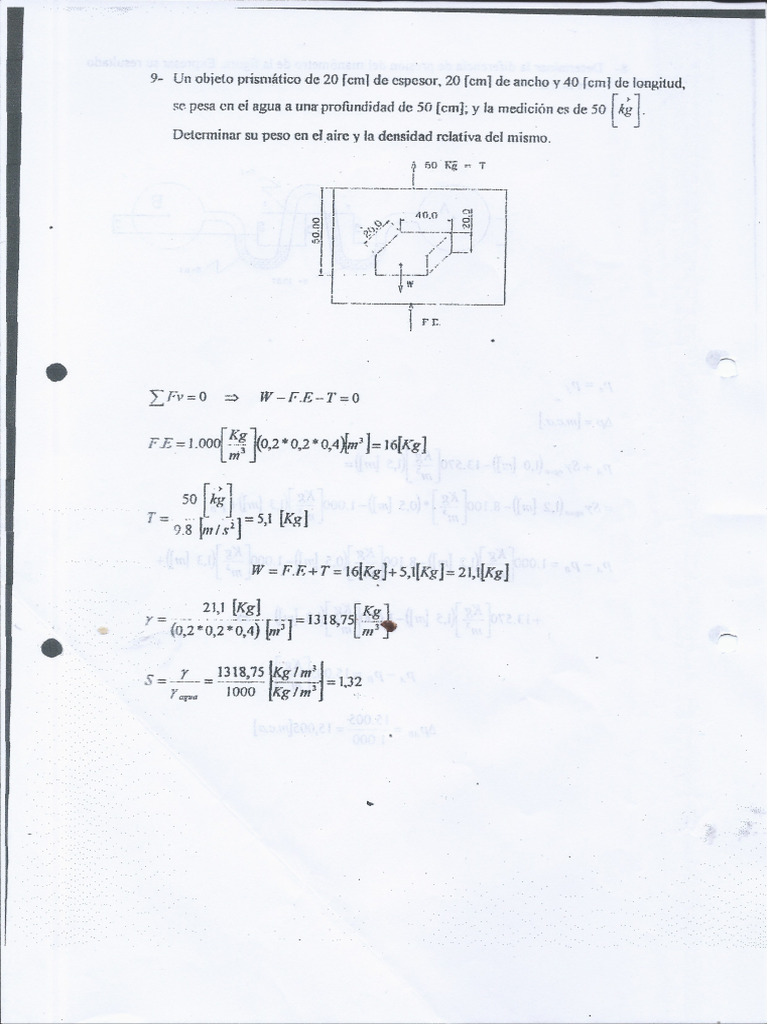 9- Un objeto prismático de 20 [cm] de espesor, 20 [cm] de ancho y 40 [cm] de longitud,
se pesa en el agua a una profundidad de 50 [cm]; y la medición es de 50 [kg].
Determinar su peso en el aire y la densidad relativa del mismo.
50 Kg = T
50.00
20,0
40,0
20,0
W
F E.
∑Fv = 0 ⇒ W − F.E − T = 0
F.E = 1.000 [Kg/m³] (0,2 * 0,2 * 0,4)[m³] = 16[Kg]
T = 50 [kg] / 9.8 [m/s²] = 5,1 [Kg]
W = F.E + T = 16[Kg] + 5,1[Kg] = 21,1[Kg]
γ = 21,1 [Kg] / (0,2 * 0,2 * 0,4) [m³] = 1318,75 [Kg/m³]
S = γ / γ agua = 1318,75 / 1000 [Kg/m³ / Kg/m³] = 1,32